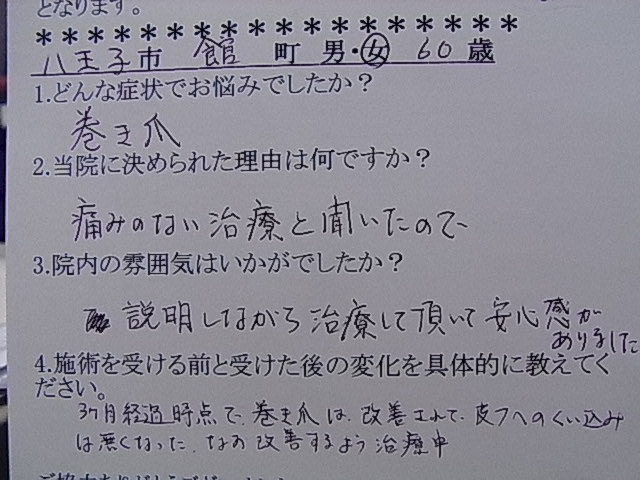 となります。
＊＊＊＊＊＊＊＊＊＊＊＊＊＊＊＊＊＊＊
八王子市 館 町 男・女 60 歳
1.どんな症状でお悩みでしたか？
巻き爪
2.当院に決められた理由は何ですか？
痛みのない治療と聞いたので
3.院内の雰囲気はいかがでしたか？
説明しながら治療して頂いて安心感が
ありました
4.施術を受ける前と受けた後の変化を具体的に教えてく
ださい。
3ヶ月経過時点で、巻き爪は、改善されて、皮フへのくい込み
は無くなった、なお改善するよう治療中